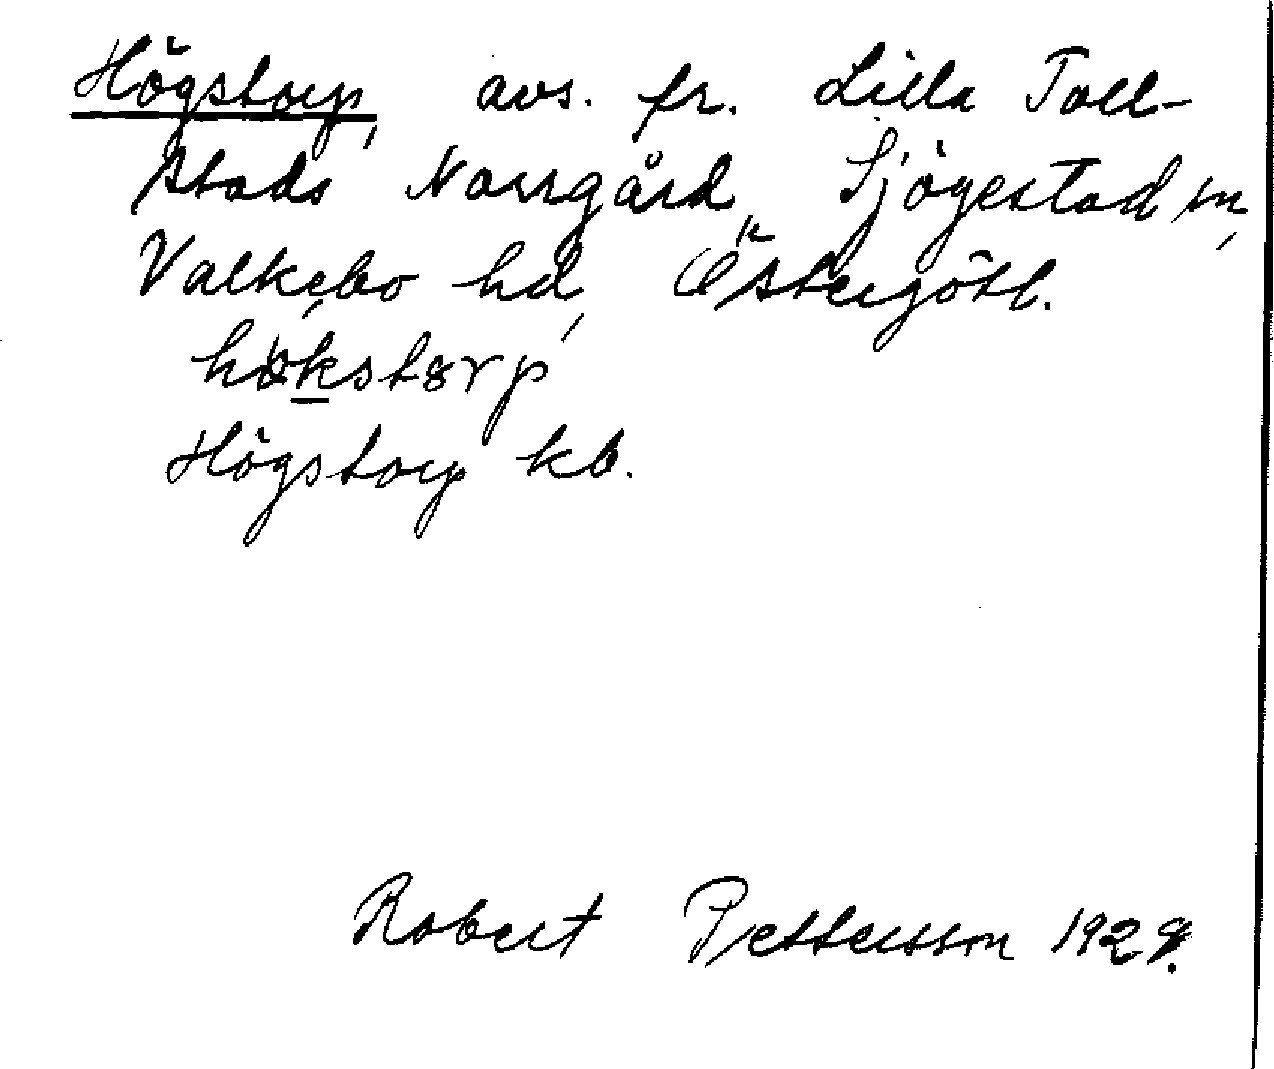 Högstorp, avs. fr. Lilla Toll-
stads Norrgård, Sjögestad sn,
Valkebo hd, Östergötl.
hökstɜrp
Högstorp kb.
Robert Pettersson 1929.